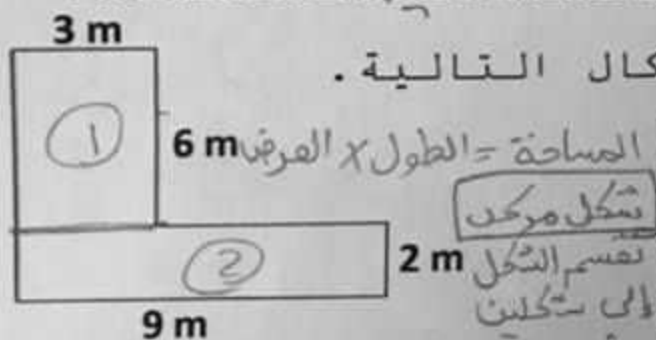 3 m
كال التالية.
1
6 m
المساحة = الطول × العرض
شكل مركب
2
2 m
نقسم الشكل
إلى شكلين
9 m